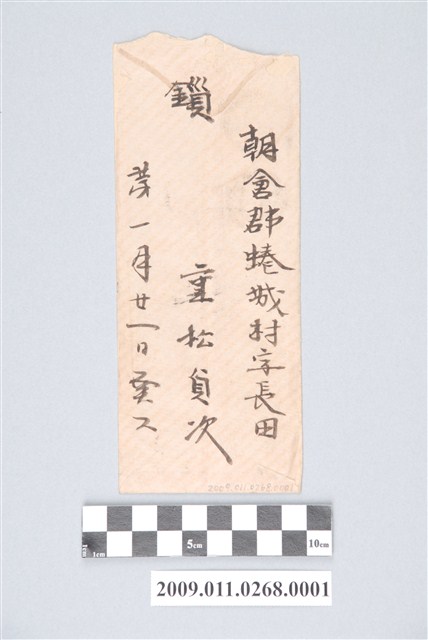 鎻
朝倉郡蜷城村字長田
重松貞次
第一月廿一日
2009.011.0268.0001
1cm
5cm
10cm
2009.011.0268.0001